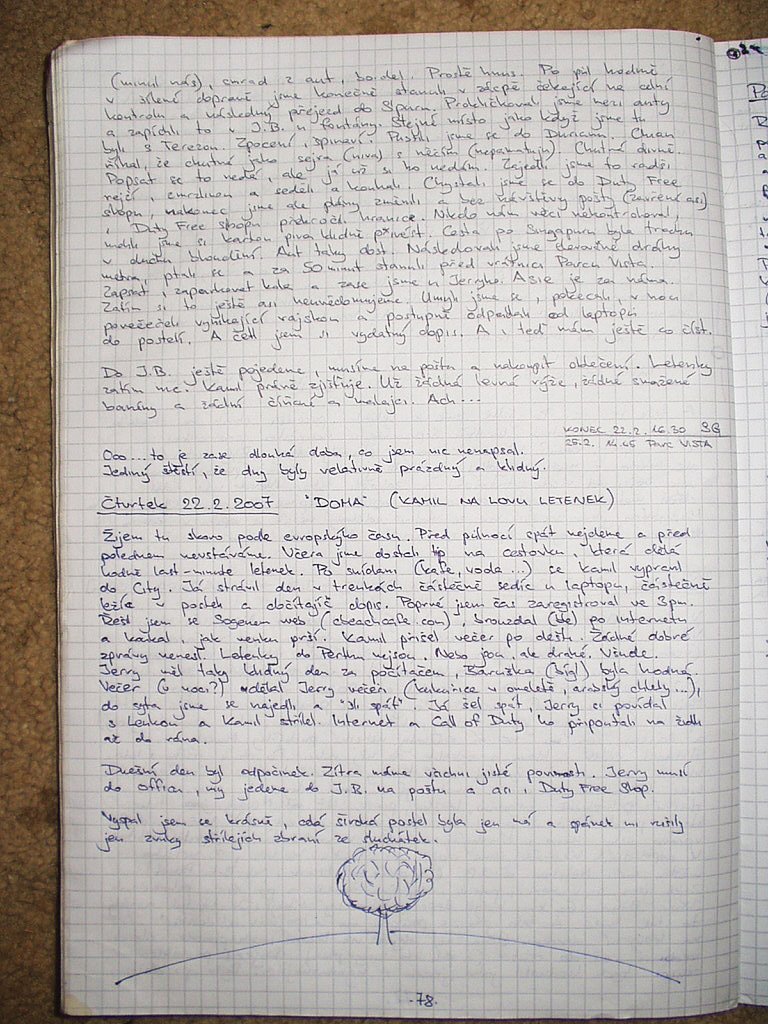 (minul nás), smrad z aut, bordel. Prostě hnus. Po půl hodině
v šílené dopravě jsme konečně stanuli v zácpě čekající na celní
kontrolu a následný přejezd do S'puru. Prokličkovali jsme mezi auty
a zapíchli to v J.B. u fontány. Stejné místo jako když jsme tu
byli s Terezou. Zpocení, špinaví. Pustili jsme se do Durianu. Chuan
říkal, že chutná jako sejra (niva) s něčím (nepamatuju). Chutná divně.
Popsat se to nedá, ale já už si ho nedám. Zajedli jsme to radši
rejží, zmrzlinou a seděli a koukali. Chystali jsme se do Duty Free
shopu, nakonec jsme ale plány změnili a bez návštěvy pošty (zavřená asi)
i Duty Free shopu překročili hranice. Nikdo nám věci nekontroloval,
mohli jsme si karton piva klidně přivést. Cesta po Singapuru byla trochu
v duchu bloudění. Aut taky dost. Následovali jsme červené dráhy
metra, ptali se a za 50 minut stanuli před vrátnicí Parcu Vista.
Zapsat, zaparkovat kola a zase jsme u Jerryho. Asie je za náma.
Zatím si to ještě asi neuvědomujeme. Umyli jsme se, pokecali, v noci
povečeřeli vynikající rajskou a postupně odpadali od laptopu
do postelí. A četl jsem si vydatný dopis. A i teď mám ještě co číst.
Do J.B. ještě pojedeme, musíme na poštu a nakoupit oblečení. Letenky
zatím nic. Kamil právě zjišťuje. Už žádná levná rýže, žádné smažené
banány a žádní číňané a malajci. Ach...
KONEC 22.2. 16.30 SG
25.2. 14.45 PARC VISTA
Ooo... to je zase dlouhá doba, co jsem nic nenapsal.
Jediný štěstí, že dny byly relativně prázdný a klidný.
ČTVRTEK 22.2.2007 "DOMA" (KAMIL NA LOVU LETENEK)
Žijem tu skoro podle evropskýho času. Před půlnocí spát nejdeme a před
polednem nevstáváme. Včera jsme dostali tip na cestovku, která dělá
hodně last-minute letenek. Po snídani (kafe, voda...) se Kamil vypravil
do City. Já strávil den v trenkách částečně sedíc u laptopu, částečně
ležíc v posteli a dočítajíc dopis. Poprvé jsem čas zaregistroval ve 3pm.
Řešil jsem se Sogenem web (cbeachcafe.com), brouzdal po internetu
a koukal, jak venku prší. Kamil přišel večer po dešti. Žádné dobré
zprávy nenesl. Letenky do Perthu nejsou. Nebo jsou, ale drahé. Všude.
Jerry měl taky klidný den za počítačem, Baruška (bígl) byla hodná.
Večer (v noci?) udělal Jerry večeři (kukuřice v omeletě, arabský chleby...),
do syta jsme se najedli a "šli spát". Já šel spát, Jerry si povídal
s Lenkou a Kamil střílel. Internet a Call of Duty ho připoutali na židli
až do rána.
Dnešní den byl odpočinek. Zítra máme všichni jisté povinnosti. Jerry musí
do officu, my jedeme do J.B. na poštu a asi i Duty Free Shop.
Vyspal jsem se krásně, celá široká postel byla jen má a spánek mi rušily
jen zvuky střílejích zbraní ze sluchátek.
-78-